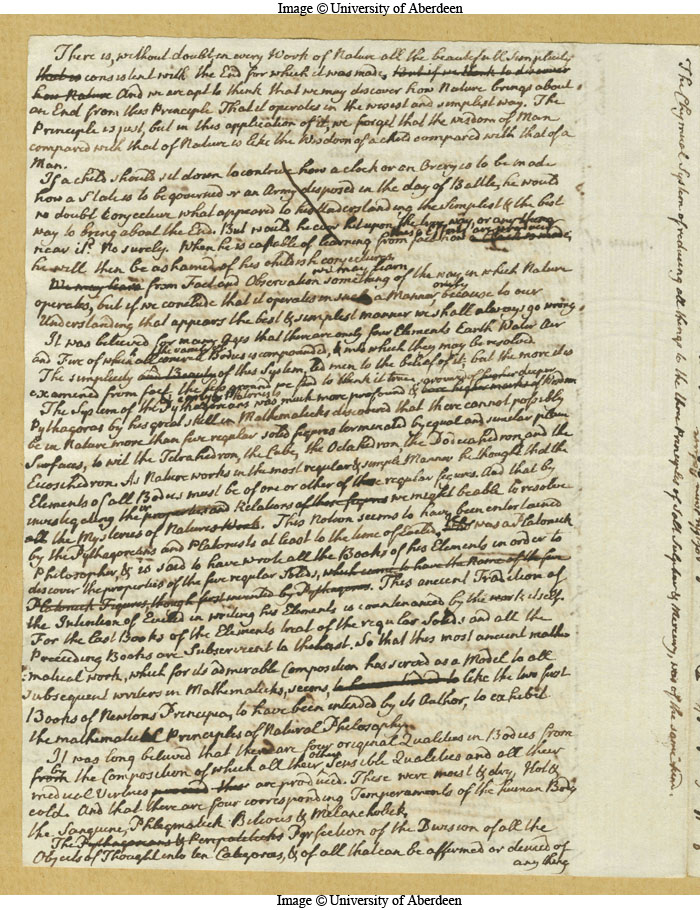 Image © University of Aberdeen
There is, without doubt, in every Work of Nature all the beautefull Simplicity
that is consistent with the End for which it was made, But if we think to discover
how Nature And we are apt to think that we may discover how Nature brings about
an End from this Principle That it operates in the wisest and simplest way. The
Principle is just, but in this application of it, we forget that the wisdom of Man
compared with that of Nature is like the Wisdom of a child compared with that of a
Man.
If a child should set down to contrive how a clock or an Orery is to be made
how a State is to be governed or an Army disposed in the day of Battle, he would
no doubt Conjecture what appeared to his Understanding the Simplest & the best
way to bring about the End. But would he ever hit upon the true way or any thing
near it? No surely. When he is capable of learning from fact how
he will then be ashamed of his childish conjectures
we may learn
We may learn from Fact and Observation something of the way in which Nature
operates, but if we conclude that it operates in such a Manner because to our
only
Understanding that appears the best & simplest manner we shall always go wrong
It was believed for many Ages that there are only four Elements Earth Water Air
and Fire of which all Bodies is compounded, & into which they may be resolved
The simplicity and Beauty of this System, led men to the belief of it; but the more it is
examined from fact, the less ground we find to think it true
The System of the Pythagoreans was much more profound &
Pythagoras by his great skill in Mathematicks discovered that there cannot possibly
be in Nature more than five regular solid figures terminated by equal and similar plain
Surfaces, to wit the Tetrahedron, the Cube, the Octahedron, the Dodecahedron and the
Eicosihedron. As Nature works in the most regular & simple Manner he thought that the
Elements of all Bodies must be of one or other of these regular figures. And that by
investigating the properties and Relations of these figures we might be able to resolve
all the Mysteries of Natures Works. This Notion seems to have been entertained
by the Pythagoreans and Platonists at least to the time of Euclid, was a Platonick
Philosopher, & is said to have wrote all the Books of his Elements in order to
discover the properties of the five regular Solids, which came to have the Name of the five
Platonick Figures, though first invented by Pythagoras. This ancient Tradition of
the Intention of Euclid in writing his Elements is countenanced by the work itself.
For the last Books of the Elements treat of the regular Solids and all the
Preceeding Books are Subservient to the last. So that this most ancient mathe-
matical work, which for its admirable Composition has served as a Model to all
subsequent writers in Mathematicks, seems, like the two first
Books of Newtons Principia, to have been intended by its Author, to exhibit
the mathematical Principles of Natural Philosophy.
It was long belived that there are four original Qualities in Bodies from
other
the Composition of which all their Sensible Qualities and all their
medical Virtues are produced. These were moist & dry, Hot &
cold. And that there are four corresponding Temperaments of the human Body
the Sanguine, Phlegmatick Bilious & Melancholick,
The Pythagoreans & Peripateticks Perfection of the Division of all the
Objects of Thought into ten Categoras, & of all that can be affirmed or denied of
any thing
The Chymical System of reducing all things to the three Principles of Salt Sulphur & Mercury, was of the same kind.
Image © University of Aberdeen